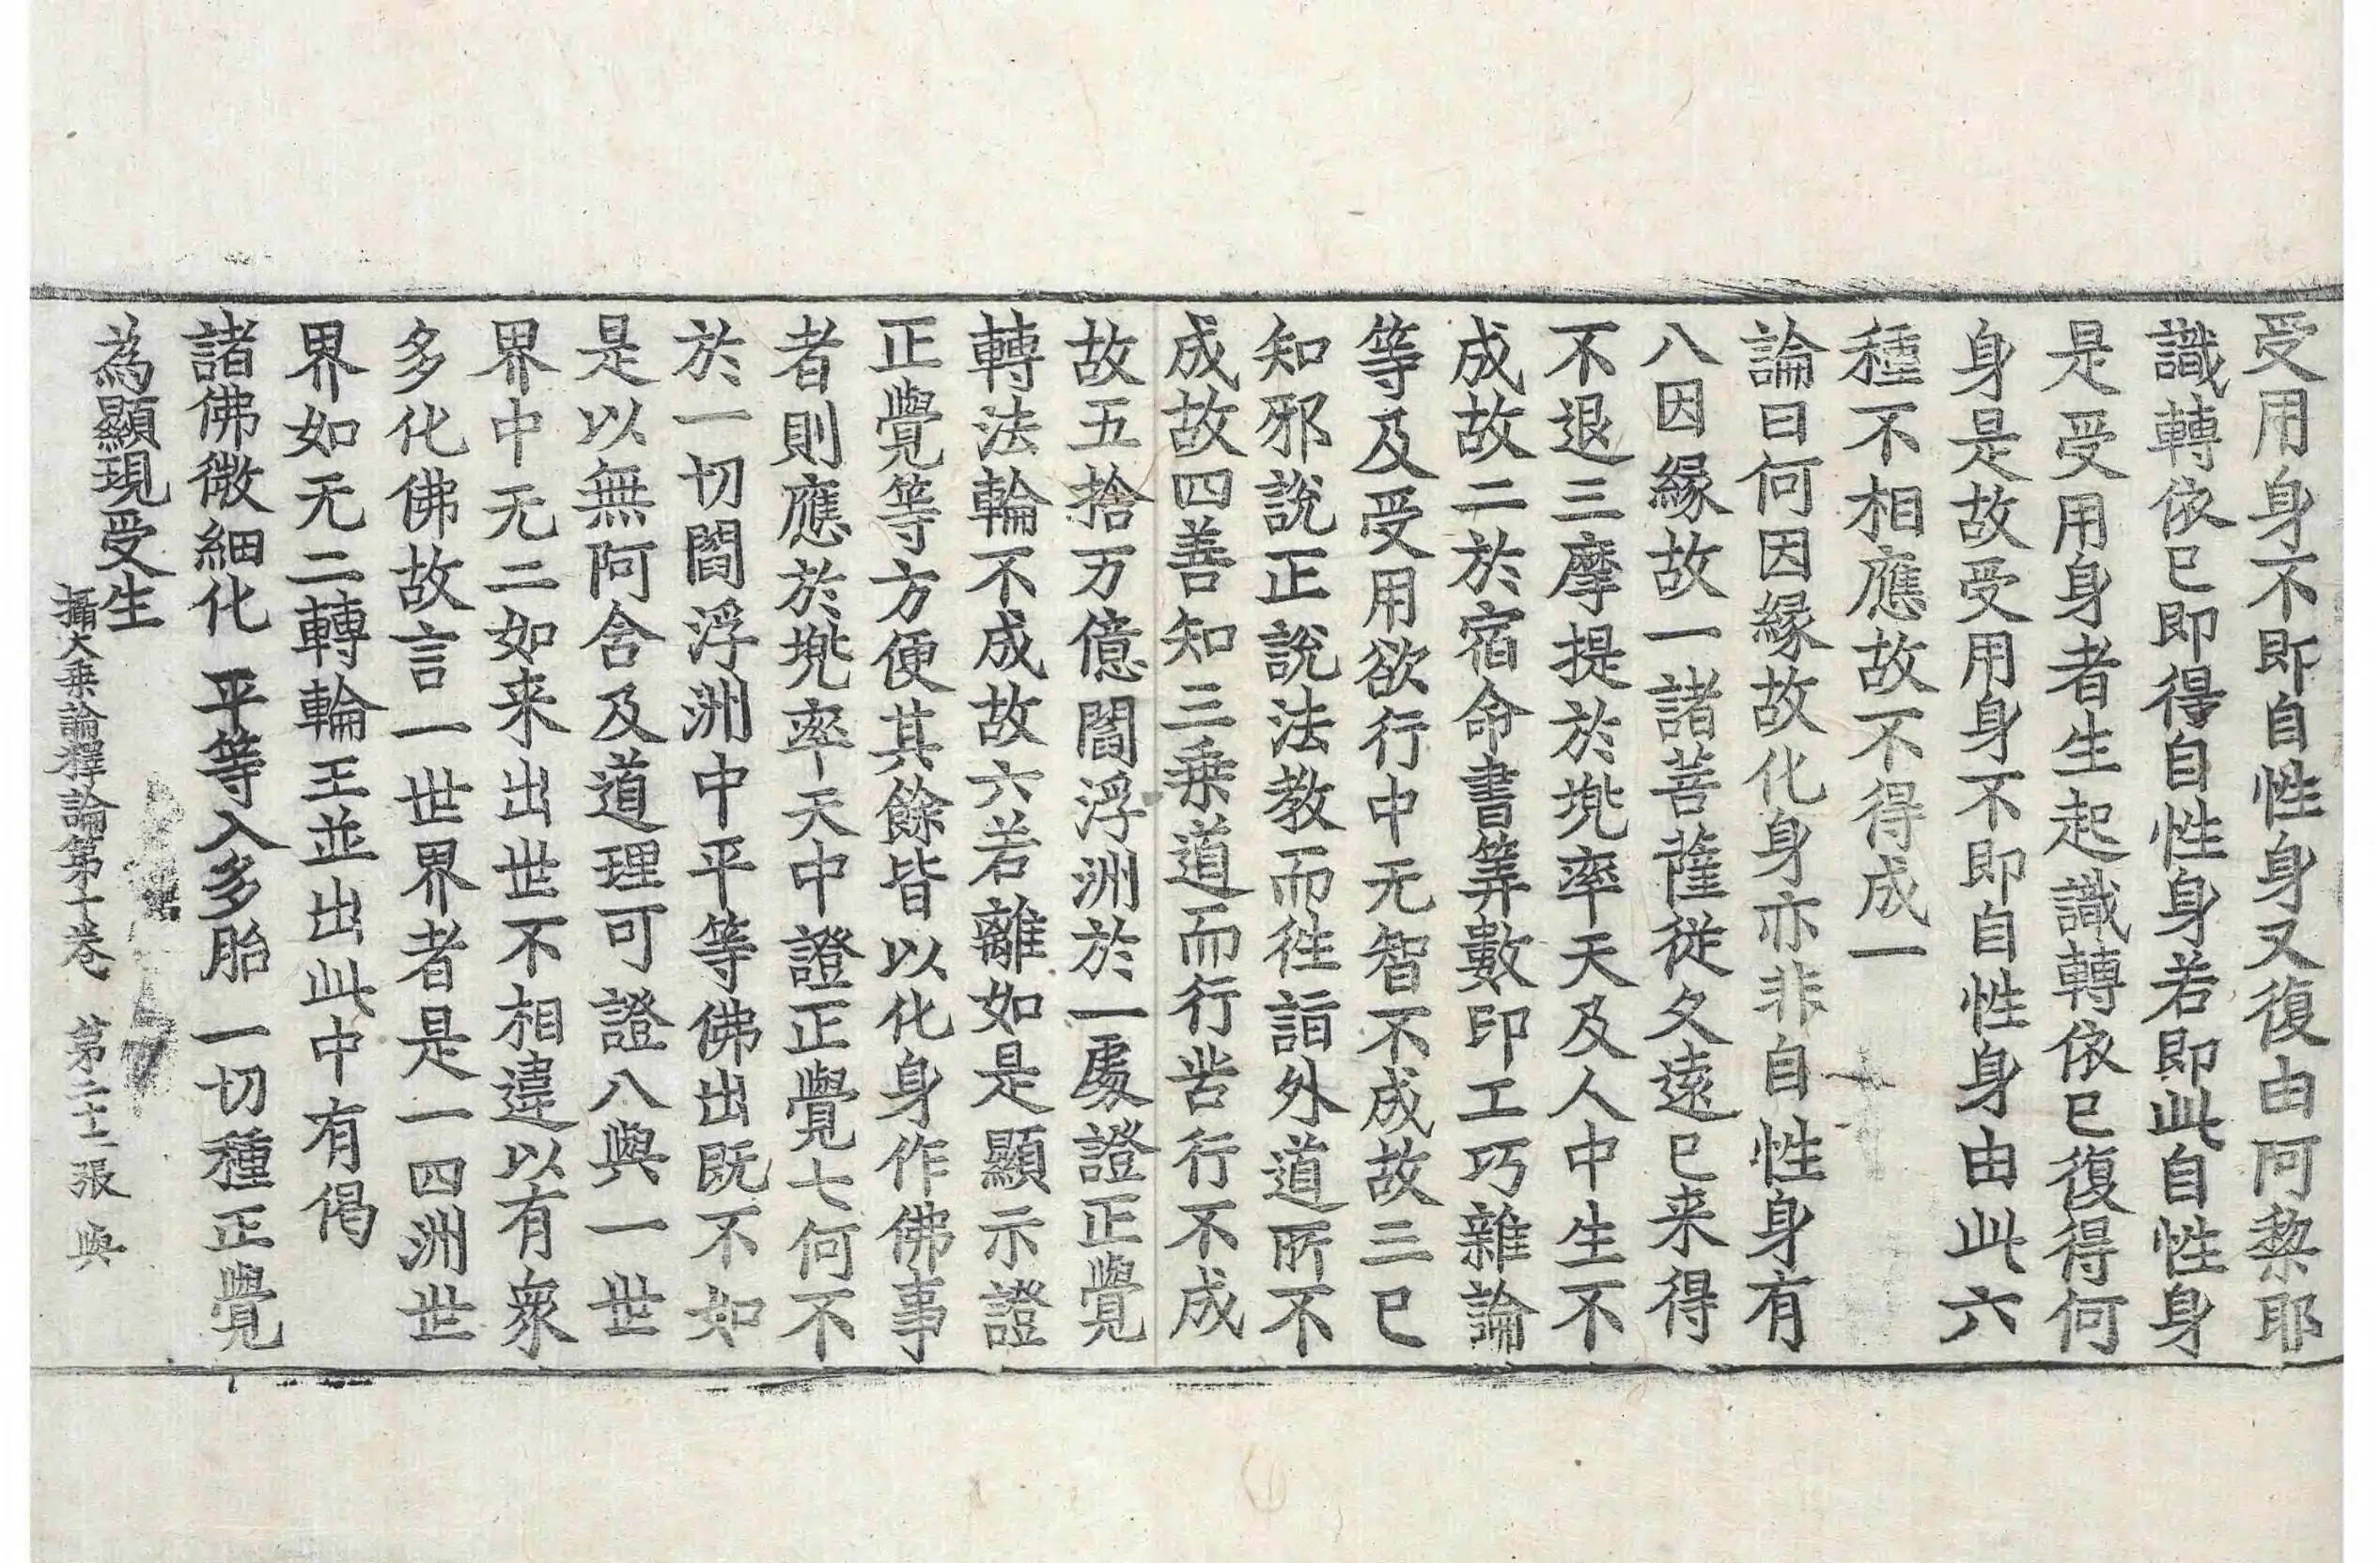 受用身不即自性身又復由阿黎耶
識轉依已即得自性身若即此自性身
是受用身者生起識轉依已復得何
身是故受用身不即自性身由此六
種不相應故不得成一
論曰何因緣故化身亦非自性身有
八因緣故一諸菩薩從久遠已来得
不退三摩提於兠率天及人中生不
成故二於宿命書筭數印工巧雜論
等及受用欲行中无智不成故三已
知邪說正說法教而徃詣外道所不
成故四善知三乗道而行苦行不成
故五捨万億閻浮洲於一處證正覺
轉法輪不成故六若離如是顯示證
正覺等方便其餘皆以化身作佛事
者則應於兠率天中證正覺七何不
於一切閻浮洲中平等佛出既不如
是以無阿含及道理可證八與一世
界中无二如来出世不相違以有衆
多化佛故言一世界者是一四洲世
界如无二轉輪王並出此中有偈
諸佛微細化 平等入多胎 一切種正覺
為顯現受生
攝大乗論釋論第十卷 第二十二張 與